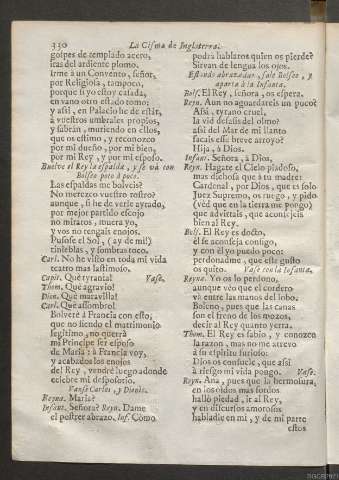 330 La Cisma de Inglaterra.
golpes de templado acero,
iras del ardiente plomo.
Irme à un Convento, señor,
por Religiosa, tampoco,
porque si yo estoy casada,
en vano otro estado tomo:
y assi, en Palacio he de estàr,
à vuestros umbrales propios,
y sabràn, muriendo en ellos,
que os estimo, y reconozco
por mi dueño, por mi bien,
por mi Rey, y por mi esposo.
Buelve el Rey la espalda, y se và con
Bolseo poco à poco.
Las espaldas me bolveis?
No merezco vuestro rostro?
aunque, si he de verle ayrado,
por mejor partido escojo
no miraros, muera yo,
y vos no tengais enojos.
Pusose el Sol, (ay de mi!)
tinieblas, y sombras toco.
Carl. No he visto en toda mi vida
teatro mas lastimoso.
Capit. Què tyrania! Vase.
Thom. Què agravio!
Dion. Què maravilla!
Carl. Què assombro!
Bolverè à Francia con esto,
que no siendo el matrimonio
legitimo, no querrà
mi Principe ser esposo
de Maria: à Francia voy,
y acabados los enojos
del Rey, vendrè luego adonde
celebre mi desposorio.
Vanse Carlos, y Dionis.
Reyna. Maria?
Infant. Señora? Reyn. Dame
el postrer abrazo. Inf. Còmo
podrà hablaros quien os pierde?
Sirvan de lengua los ojos.
Estando abrazadas, sale Bolseo, y
aparta à la Infanta.
Bols. El Rey, señora, os espera.
Reyn. Aun no aguardareis un poco?
Assi, tyrano cruel,
la vid desasis del olmo?
assi del Mar de mi llanto
sacais esse breve arroyo?
Hija, à Dios.
Infant. Señora, à Dios.
Reyn. Hagate el Cielo piadoso,
mas dichosa que à tu madre:
Cardenal, por Dios, que es solo
Juez Supremo, os ruego, y pido
(vèd que en la tierra me pongo)
que advirtais, que aconsejeis
bien al Rey.
Bols. El Rey es docto,
èl se aconseja consigo,
y con èl yo puedo poco:
perdonadme, que este gusto
os quito. Vase con la Infanta.
Reyna. Yo os lo perdono,
aunque vèo que el cordero
và entre las manos del lobo.
Bolseno, pues que las canas
son el freno de los mozos,
decir al Rey quanto yerra.
Thom. El Rey es sabio, y conozco
la razon, mas no me atrevo
à su espiritu furioso:
Dios os consuele, que assi
à riesgo mi vida pongo. Vase.
Reyn. Ana, pues que la hermosura,
en los oidos mas sordos
hallò piedad, ir al Rey,
y en discursos amorosos
habladle en mi, y de mi parte
estos